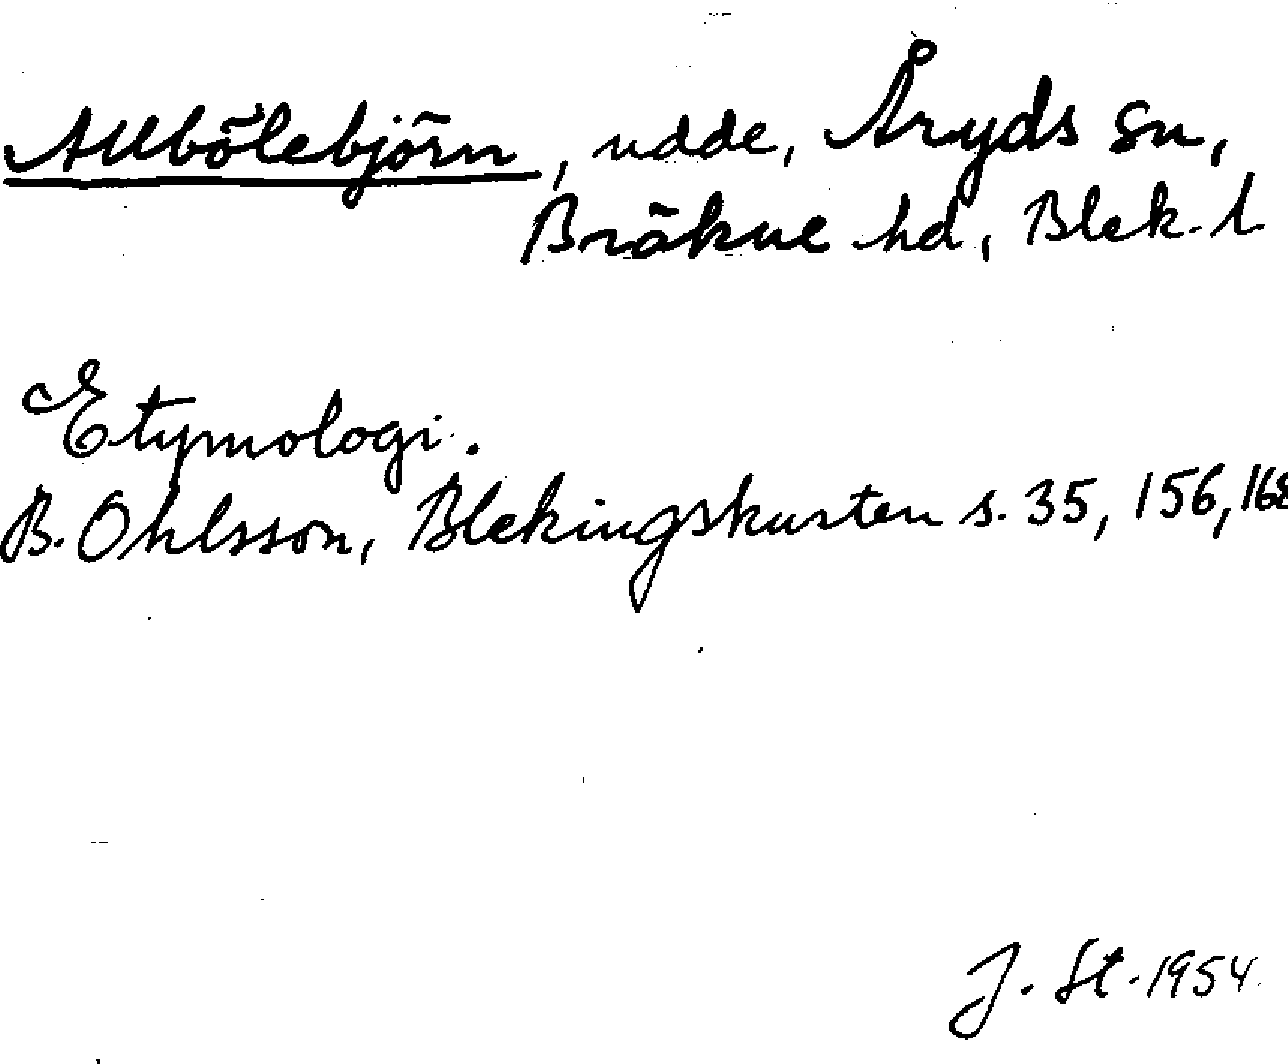 Allbölebjörn, udde, Åryds sn,
Bräkne hd, Blek. l.
Etymologi.
B. Ohlsson, Blekingskusten s. 35, 156, 168
J. St. 1954